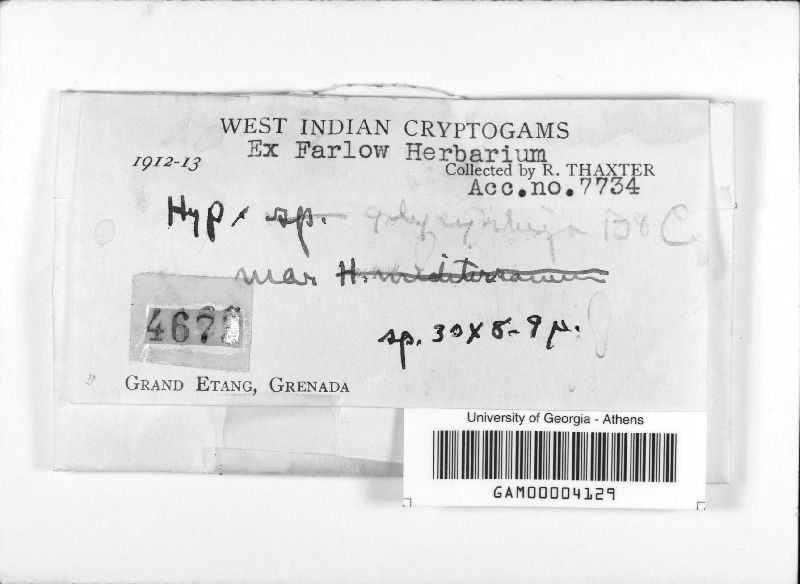 WEST INDIAN CRYPTOGAMS
Ex Farlow Herbarium
1912-13 Collected by R. THAXTER
Acc.no.7734
Hyp sp. B & C.
near H. mediterraneum
467
sp. 30 x 8-9 µ.
GRAND ETANG, GRENADA
University of Georgia - Athens
GAM00004129